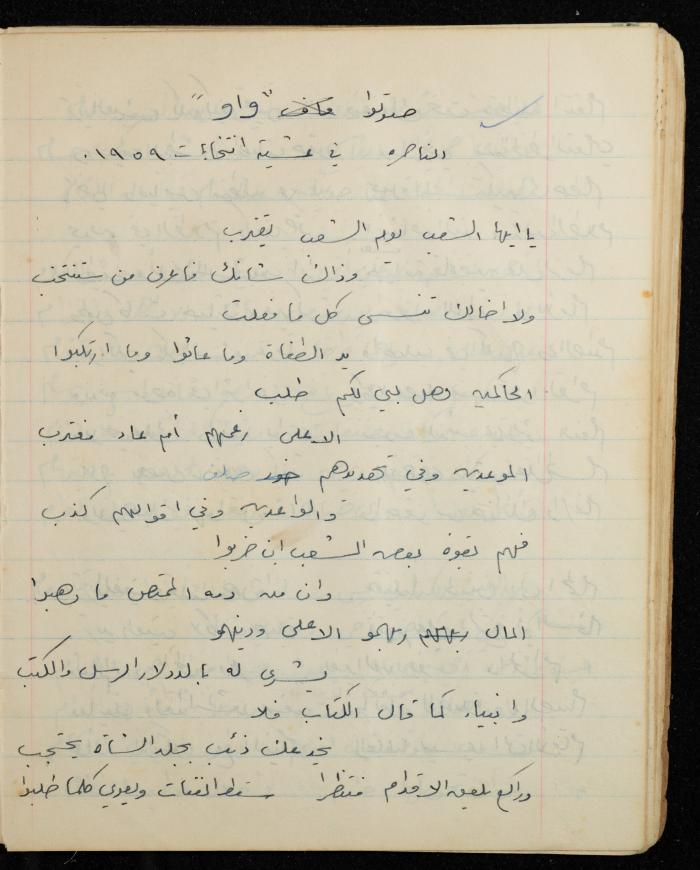 صوتوا "واو"
الناصره في عشية انتخابات ١٩٥٩.
يا ايها الشعب يوم الشعب يقترب
وذاك شانك فاعرف من ستنتخب
ولا اخالك تنسى كل ما فعلت
يد الطغاة وما عاثوا وما ارتكبوا
الحاكمين وهل لبي لكم طلب
الا على رغمهم أم عاد مغترب
الموعدين وفي تهديدهم صلف
والواعدين وفي اقوالهم كذب
فهم بقوة بعض الشعب ان ضربوا
وان من دمه الممتص ما وهبوا
المال ربهمو الاعلى ودينهمو
يشرى له بالدولار الرسل والكتب
وانبياء كما قال الكتاب فلا
يخدعك ذئب بجلد الشاة يحتجب
وراكع يلعق الاقدام منتظرا سقط الفتات ويعوي كلما طلبوا